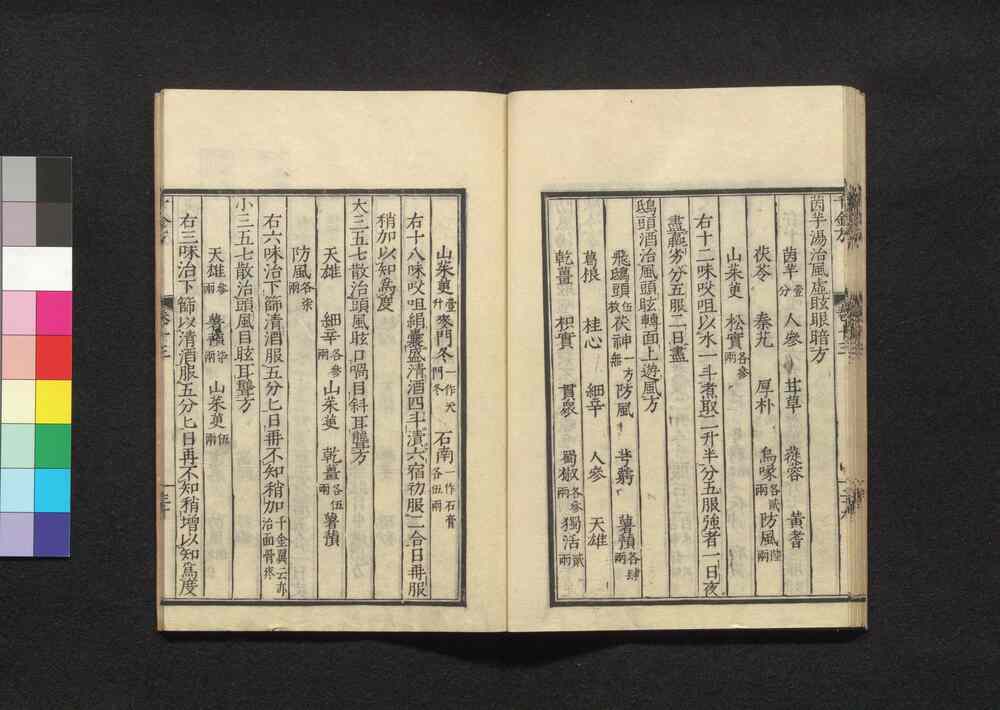 茵芋湯治風虛眩眼暗方
茵芋壹分 人參 甘草 蓯蓉 黃耆
茯苓 秦艽 厚朴 烏喙各貳兩 防風陸兩
山茱萸 松實各參兩
右十二味㕮咀以水一斗煮取二升半分五服強者一日夜
盡羸劣分五服二日盡
鴟頭酒治風頭眩轉面上遊風方
飛鴟頭伍枚 茯神一方無 防風 芎藭 薯蕷各肆兩
葛根 桂心 細辛 人參 天雄
乾薑 枳實 貫衆 蜀椒各參兩 獨活貳兩
山茱萸壹升 麥門冬一作天門冬 石南一作石膏各伍兩
右十八味㕮咀絹囊盛清酒四斗漬六宿初服二合日再服
稍加以知爲度
大三五七散治頭風眩口喎目斜耳聾方
天雄 細辛各參兩 山茱萸 乾薑各伍兩 薯蕷
防風各柒兩
右六味治下篩清酒服五分匕日再不知稍加千金翼云亦治面骨疼
小三五七散治頭風目眩耳聾方
天雄參兩 薯蕷柒兩 山茱萸伍兩
右三味治下篩以清酒服五分匕日再不知稍增以知爲度